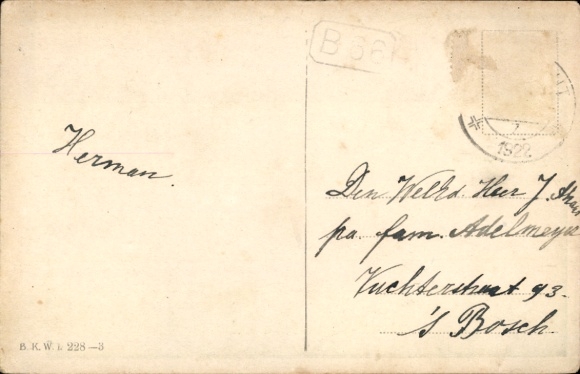 B 66
1922
Herman.
Den Welkd Heer J.
pa. fam. Adelmeyer
Vuchterstraat 93.
's Bosch.
B. K. W. I. 228-3